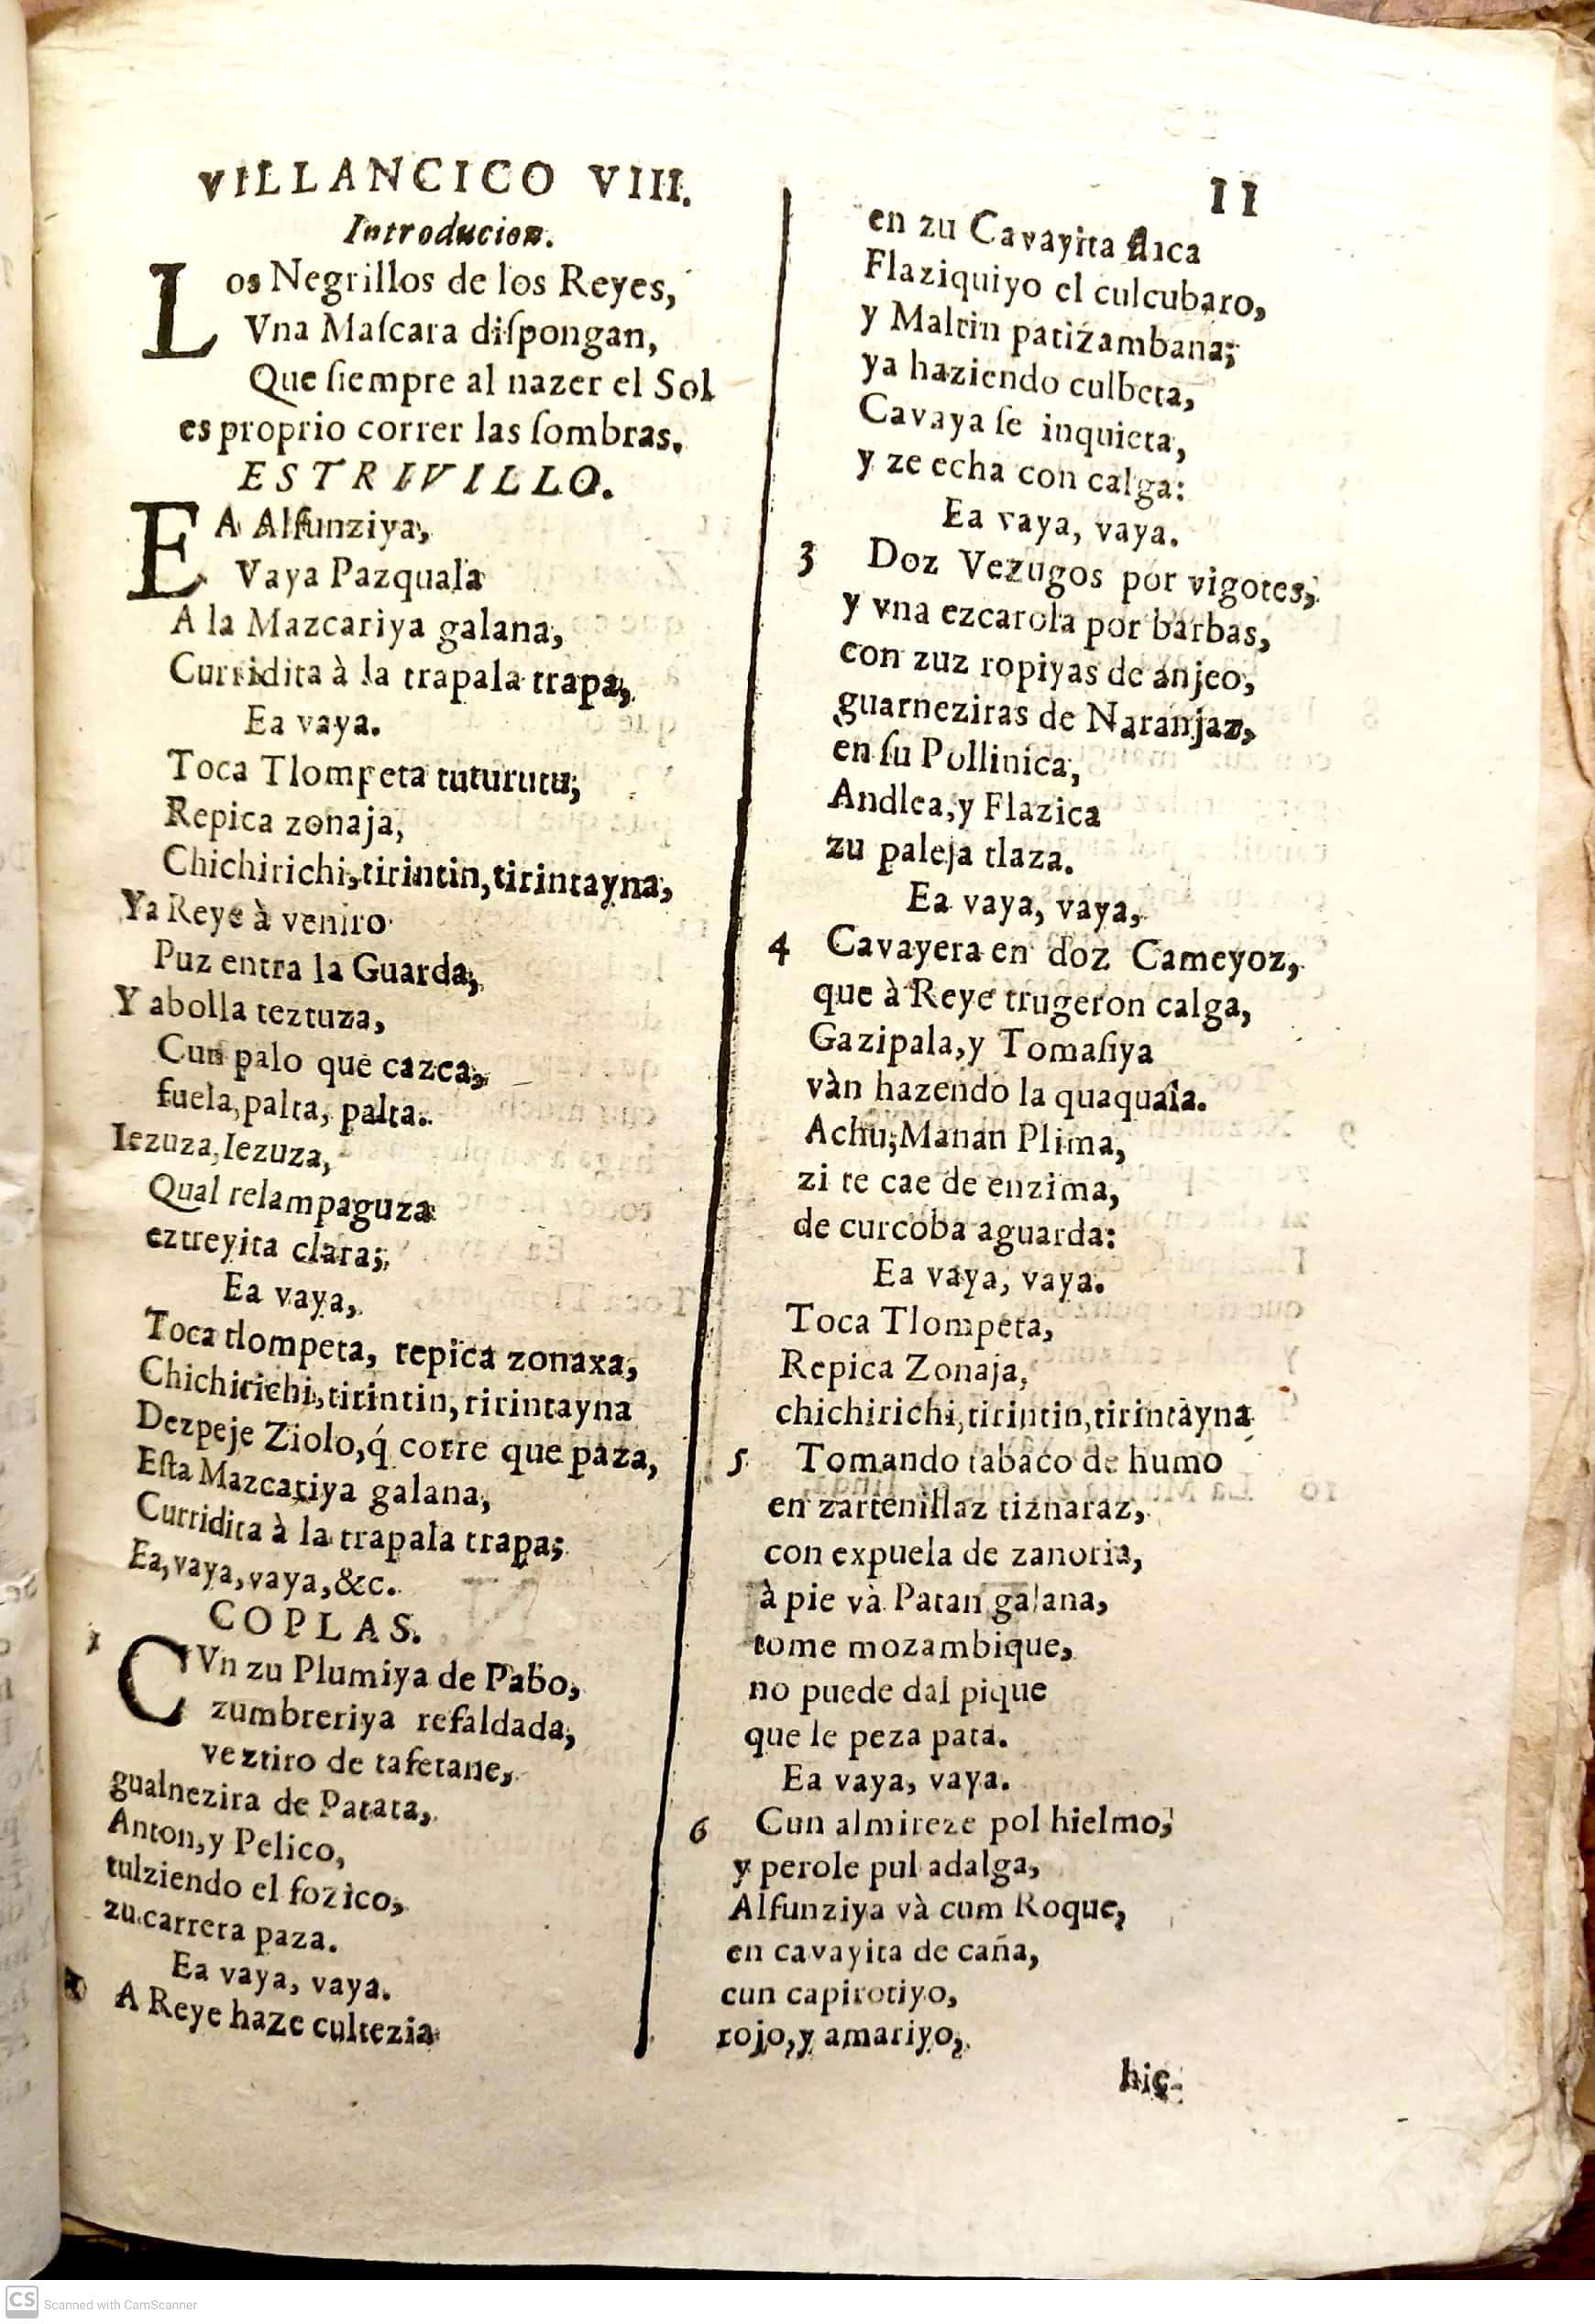 VILLANCICO VIII.
Introducion.
Los Negrillos de los Reyes,
Vna Maſcara diſpongan,
Que ſiempre al nazer el Sol
es proprio correr las ſombras.
ESTRIVILLO.
EA Alfunziya,
Vaya Pazquala
A la Mazcariya galana,
Curridita à la trapala trapa,
Ea vaya.
Toca Tlompeta tuturutu;
Repica zonaja,
Chichirichi, tirintin, tirintayna,
Ya Reye à veniro
Puz entra la Guarda,
Y abolla teztuza,
Cun palo que cazca,
fuela, palta, palta.
Iezuza, Iezuza,
Qual relampaguza
eztreyita clara;
Ea vaya,
Toca tlompeta, repica zonaxa,
Chichirichi, tirintin, tirintayna
Dezpeje Ziolo, q́ corre que paza,
Eſta Mazcariya galana,
Curridita à la trapala trapa;
Ea, vaya, vaya, &c.
COPLAS.
1 CVn zu Plumiya de Pabo,
zumbreriya refaldada,
veztiro de tafetane,
gualnezira de Patata,
Anton, y Pelico,
tulziendo el fozico,
zu carrera paza.
Ea vaya, vaya.
A Reye haze cultezia
11
en zu Cavayita
Flaziquiyo el culcubaro,
y Maltin patizambana;
ya haziendo culbeta,
Cavaya ſe inquieta,
y ze echa con calga:
Ea vaya, vaya.
3 Doz Vezugos por vigotes,
y vna ezcarola por barbas,
con zuz ropiyas de anjeo,
guarneziras de Naranjaz,
en ſu Pollinica,
Andlea, y Flazica
zu paleja tlaza.
Ea vaya, vaya,
4 Cavayera en doz Cameyoz,
que à Reye trugeron calga,
Gazipala, y Tomaſiya
vàn hazendo la quaquala.
Achu, Manan Plima,
zi te cae de enzima,
de curcoba aguarda:
Ea vaya, vaya.
Toca Tlompeta,
Repica Zonaja,
chichirichi, tirintin, tirintayna
5 Tomando tabaco de humo
en zartenillaz tiznaraz,
con expuela de zanoria,
à pie và Patan galana,
tome mozambique,
no puede dal pique
que le peza pata.
Ea vaya, vaya.
6 Cun almireze pol hielmo,
y perole pul adalga,
Alfunziya và cum Roque,
en cavayita de caña,
cun capirotiyo,
rojo, y amariyo,
hic-
CS Scanned with CamScanner